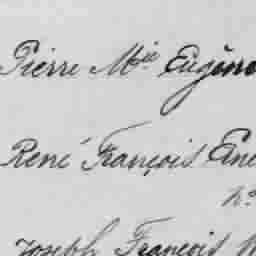 Pierre Mie Eugène
René François Em
no
Joseph François M